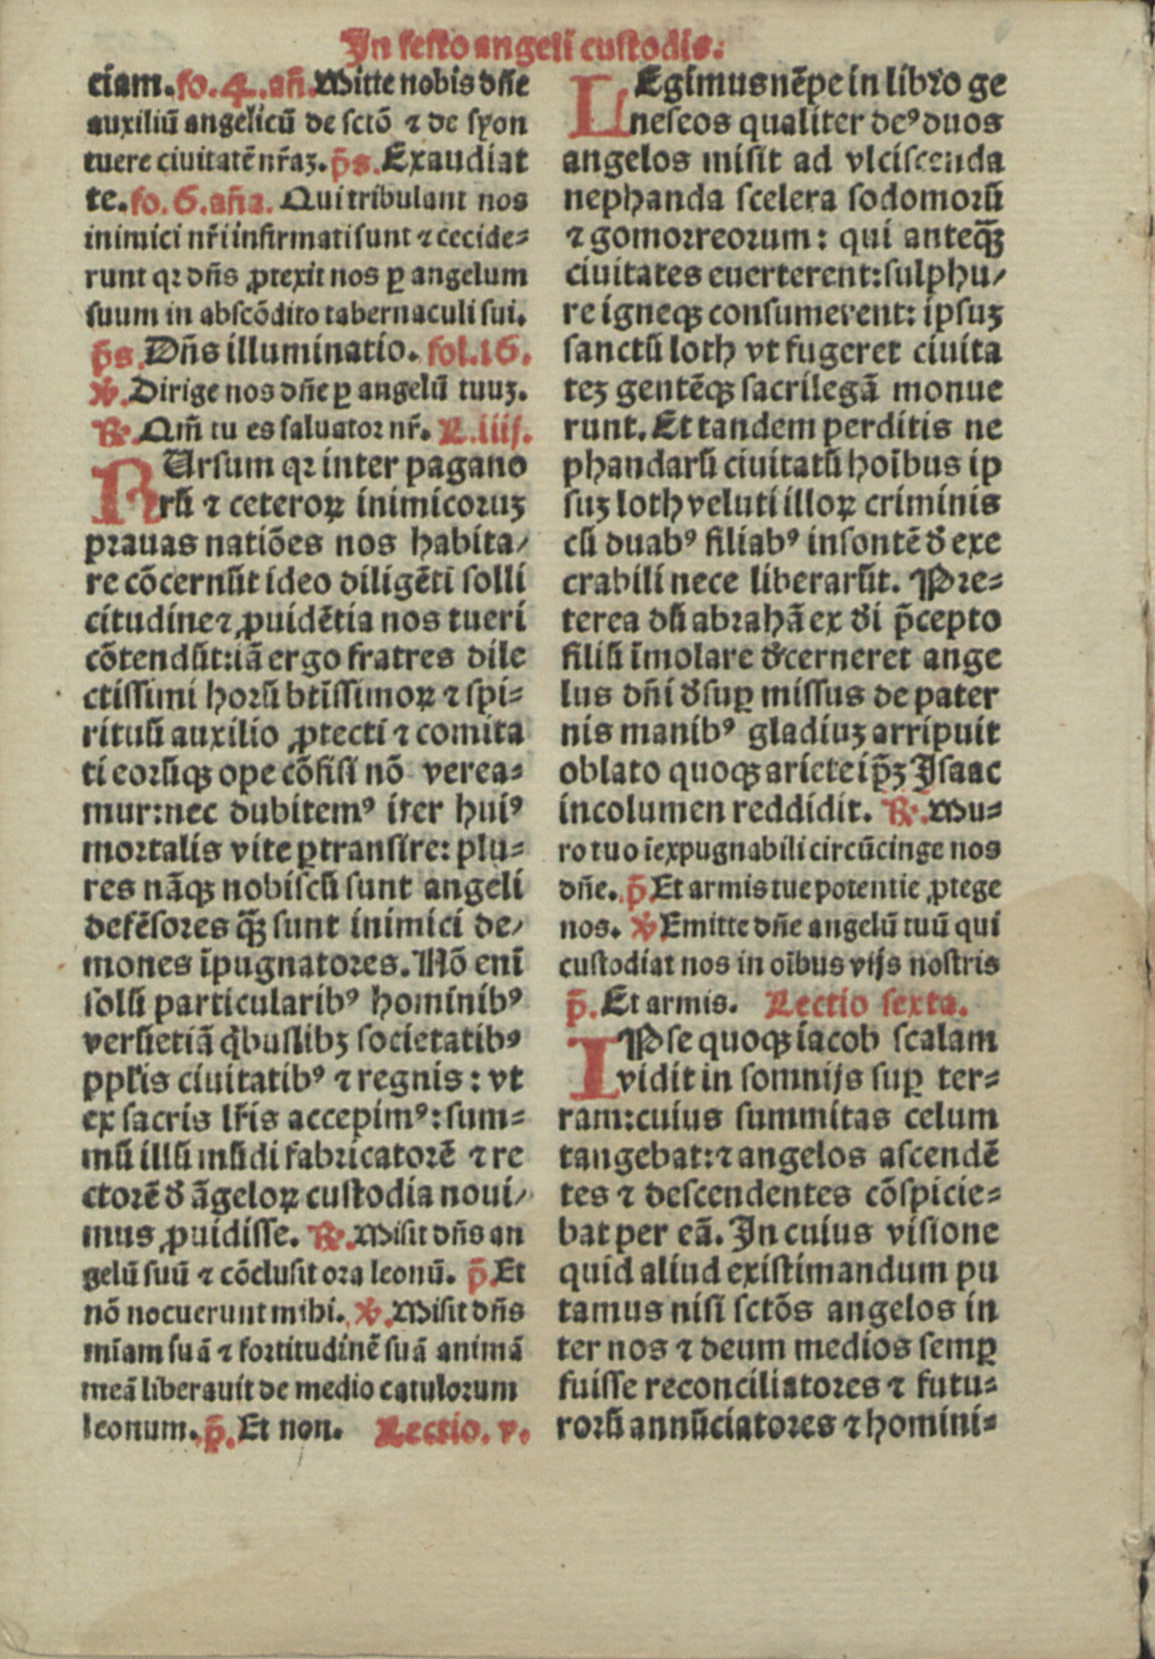 In festo angeli custodis.
ciam. fo. 4. añ. Mitte nobis dñe
auxiliū angelicū de sctō ⁊ de syon
tuere ciuitatē nr̄aʒ. p̄s. Exaudiat
te. fo. 6. aña. Qui tribulant nos
inimici nr̄i infirmati sunt ⁊ cecide-
runt qꝛ dñs ꝓtexit nos ꝑ angelum
suum in abscōdito tabernaculi sui.
p̄s. Dñs illuminatio. fol. 16.
℣. Dirige nos dñe ꝑ angelū tuuʒ.
℟. Qm̄ tu es saluator nr̄. L. iiij.
RUrsum qꝛ inter pagano
rū ⁊ ceteroꝝ inimicoruʒ
prauas natiōes nos habita/
re cōcernūt ideo diligēti solli
citudine ⁊ ꝓuidētia nos tueri
cōtendūt: iā ergo fratres dile
ctissimi horū btīssimoꝝ ⁊ spi-
rituū auxilio ꝓtecti ⁊ comita
ti eorūqꝫ ope cōfisi nō verea-
mur: nec dubitemꝰ iter huiꝰ
mortalis vite ꝑtransire: plu-
res nāqꝫ nobiscū sunt angeli
defēsores q̄ꝫ sunt inimici de/
mones īpugnatores. Nō enī
solū particularibꝰ hominibꝰ
versietiā q̇buslibꝫ societatibꝰ
ppl̄is ciuitatibꝰ ⁊ regnis: vt
ex sacris lr̄is accepimꝰ: sum-
mū illū mūdi fabricatorē ⁊ re
ctorē d̄ āgeloꝝ custodia noui/
mus ꝓuidisse. ℟. Misit dñs an
gelū suū ⁊ cōclusit ora leonū. p̄. Et
nō nocuerunt mihi. ℣. Misit dñs
mīam suā ⁊ fortitudinē suā animā
meā liberauit de medio catulorum
leonum. p̄. Et non. Lectio. v.
LEgimus nēpe in libro ge
neseos qualiter deꝰ duos
angelos misit ad vlciscenda
nephanda scelera sodomorū
⁊ gomorreorum: qui anteq̄ꝫ
ciuitates euerterent: sulphu/
re igneqꝫ consumerent: ipsuʒ
sanctū loth vt fugeret ciuita
teʒ gentēqꝫ sacrilegā monue
runt. Et tandem perditis ne
phandarū ciuitatū hoībus ip
suʒ loth veluti illoꝝ criminis
cū duabꝰ filiabꝰ insontē d̄ exe
crabili nece liberarūt. Pre-
terea dū abrahā ex d̄i p̄cepto
filiū īmolare d̄cerneret ange
lus dñi d̄suꝑ missus de pater
nis manibꝰ gladiuʒ arripuit
oblato quoqꝫ ariete ip̄ʒ Isaac
incolumen reddidit. ℟. Mu-
ro tuo īexpugnabili circūcinge nos
dñe. p̄. Et armis tue potentie ꝓtege
nos. ℣. Emitte dñe angelū tuū qui
custodiat nos in oībus vijs nostris
p̄. Et armis. Lectio sexta.
IPse quoqꝫ iacob scalam
vidit in somnijs suꝑ ter-
ram: cuius summitas celum
tangebat: ⁊ angelos ascendē
tes ⁊ descendentes cōspicie-
bat per eā. In cuius visione
quid aliud existimandum pu
tamus nisi sctōs angelos in
ter nos ⁊ deum medios semꝑ
fuisse reconciliatores ⁊ futu-
rorū annūciatores ⁊ homini-